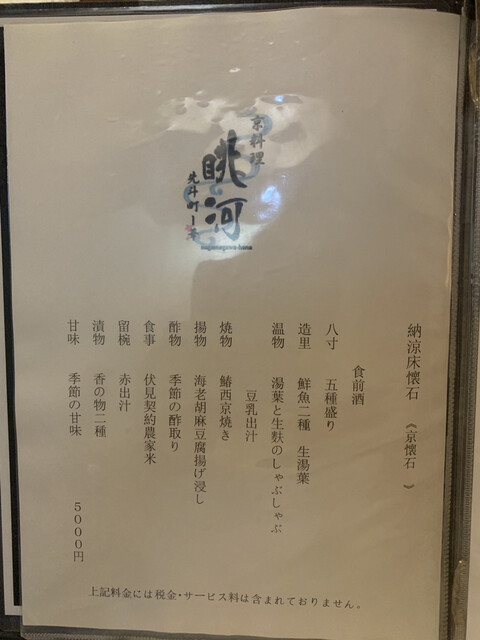 京料理
眺河
先斗町
納涼床懐石 《京懐石 》
食前酒
八寸 五種盛り
造里 鮮魚二種 生湯葉
温物 湯葉と生麩のしゃぶしゃぶ
豆乳出汁
焼物 鰆西京焼き
揚物 海老胡麻豆腐揚げ浸し
酢物 季節の酢取り
食事 伏見契約農家米
留椀 赤出汁
漬物 香の物二種
甘味 季節の甘味
5000円
上記料金には税金・サービス料は含まれておりません。